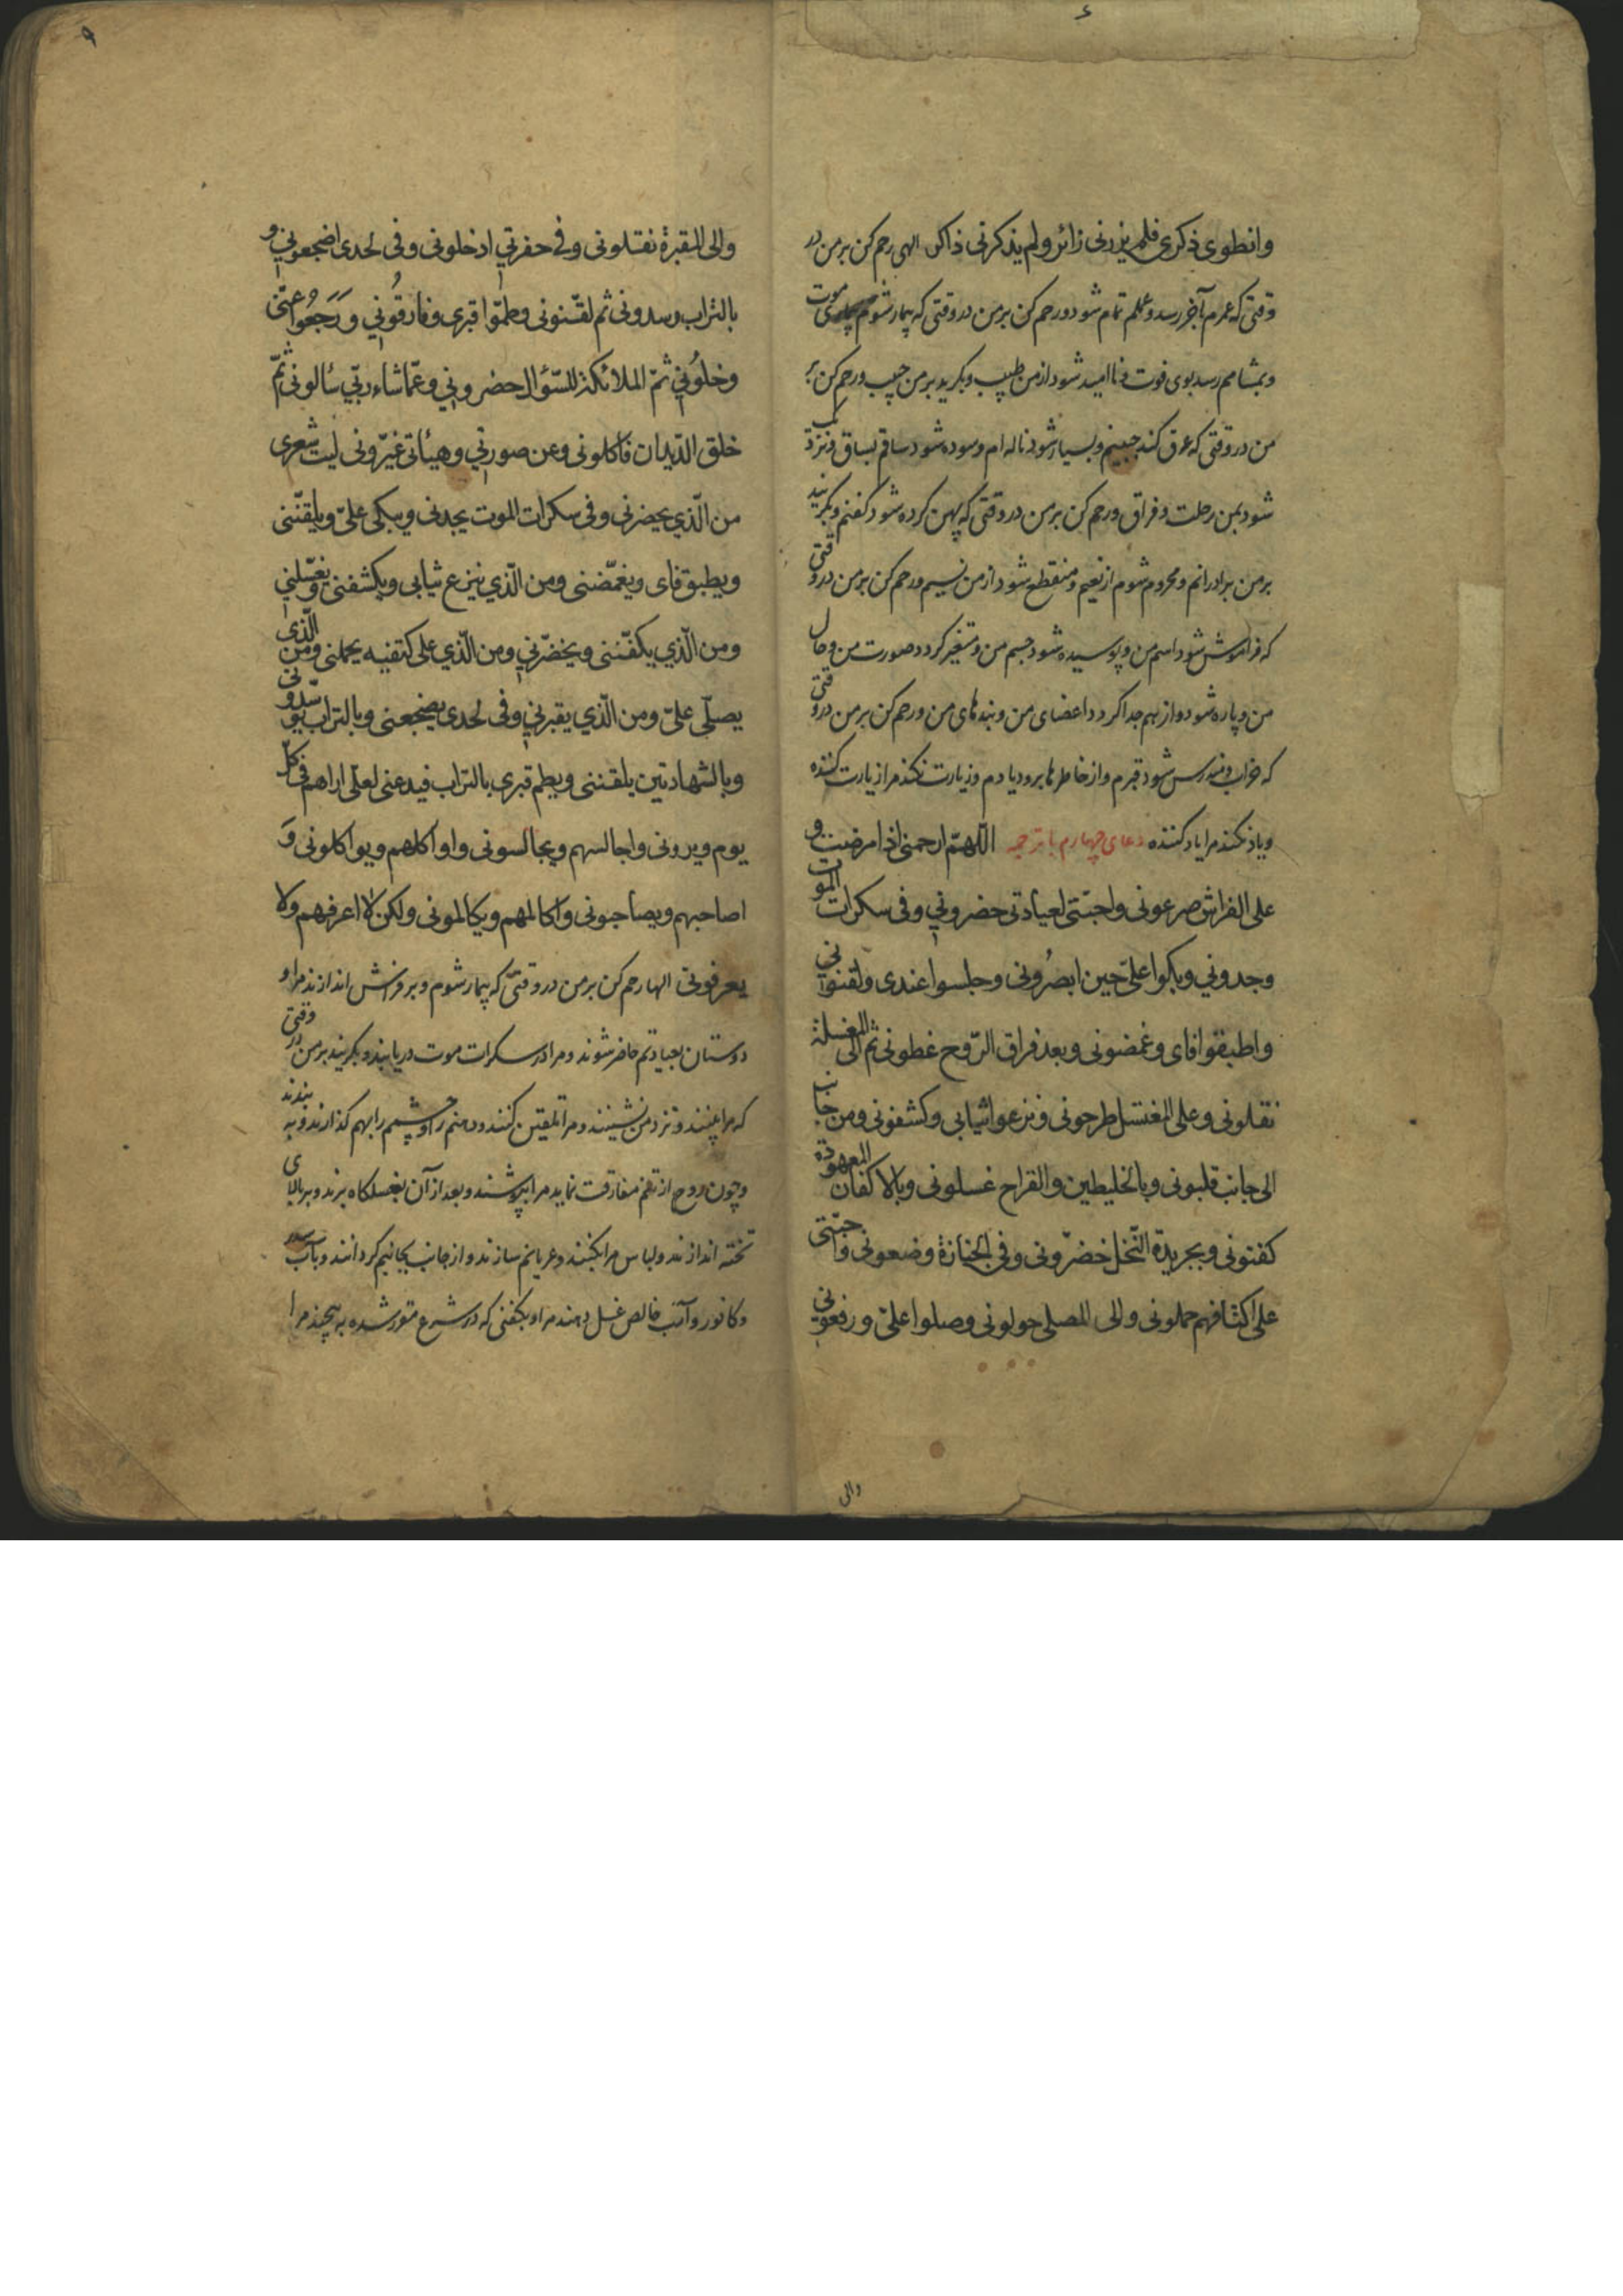 وانطوی ذکری فلم یزرنی زائر ولم یذکرنی ذاکر الهی رحم کن بر من در
وقتی که عمرم بآخر رسد و عملم تمام شود و رحم کن بر من در وقتی که بیمار شوم موت
و بمشامم رسد بوی فوت و ناامید شود از من طبیب و بگرید بر من حبیب و رحم کن بر
من در وقتی که عرق کند جبینم و بسیار شود ناله ام و سوده شود ساقم بساق و نزدیک
شود بمن رحلت و فراق و رحم کن بر من در وقتی که پهن کرده شود کفنم و بگریند
بر من برادرانم و محروم شوم از نعیم و منقطع شود از من نسیم و رحم کن بر من در وقتی
که فراموش شود اسم من و پوسیده شود جسم من و متغیر گردد صورت من و حال
من و پاره شود و از هم جدا گردد اعضای من و بندهای من و رحم کن بر من در وقتی
که خراب و مندرس شود قبرم و از خاطرها برود یادم و زیارت نکند مرا زیارت کننده
و یاد نکند مرا یاد کننده دعای چهارم با ترجمه اللّهمّ ارحمنی اذا مرضت و
علی الفراش صرعونی واحبّتی لعیادتی حضرونی وفی سکرات الموت
وجدونی وبکوا علیّ حین ابصرونی وجلسوا عندی ولقنوانی
واطبقوا فای وغمضونی وبعد فراق الرّوح غطونی ثم الی المغسلة
نقلونی وعلی المغتسل طرحونی ونزعوا ثیابی وکشفونی ومن جانب
الی جانب قلبونی وبالخلیطین والقراح غسلونی وبالاکفان المعهودة
کفنونی وبجریدة النّخل خضّرونی وفی الجنازة وضعونی واحبّتی
علی اکتافهم حملونی والی المصلی حولونی وصلوا علیّ ورفعونی
والی
والی المقبرة نقلونی وفی حفرتی ادخلونی وفی لحدی اضجعونی و
بالتراب وسدونی ثم لقّنونی وطمّوا قبری وفارقونی ورجعوا عنّی
وخلونی ثمّ الملائکة للسّؤال حضرونی وعمّا شاء ربّی سألونی ثمّ
خلق الدّیدان فاکلونی وعن صورتی وهیئاتی غیّرونی لیت شعری
من الّذی یحضرنی وفی سکرات الموت یجدنی ویبکی علیّ ویلقّننی
ویطبق فای ویغمّضنی ومن الّذی ینزع ثیابی ویکشفنی ویغسّلنی
ومن الّذی یکفّننی ویخضّرنی ومن الّذی علی کتفیه یحملنی ومن الّذی
یصلّی علیّ ومن الّذی یقبرنی وفی لحدی یضجعنی وبالتراب یوسّدونی
وبالشهادتین یلقننی ویطم قبری بالتراب فیدعنی لعلّی اراهم فی کلّ
یوم ویرونی واجالسهم ویجالسونی واواکلهم ویواکلونی و
اصاحبهم ویصاحبونی واکالمهم ویکالمونی ولکن لا اعرفهم ولا
یعرفونی الها رحم کن بر من در وقتی که بیمار شوم و بر فراش اندازند مرا و
دوستان بعیادتم حاضر شوند و مرا در سکرات موت دریابند و بگریند بر من در وقتی
که مرا بینند و نزد من نشینند و مرا تلقین کنند و دهنم را و چشمم را بهم گذارند و به بندند
و چون روح از تنم مفارقت نماید مرا بپوشند و بعد از آن بغسلگاه برند و بر بالای
تخته اندازند و لباس مرا بکنند و عریانم سازند و از جانب بجانبم گردانند و بآب سدر
و کافور و آب خالص غسل دهند مرا و بکفنی که در شرع مقرر شده به پیچند مرا